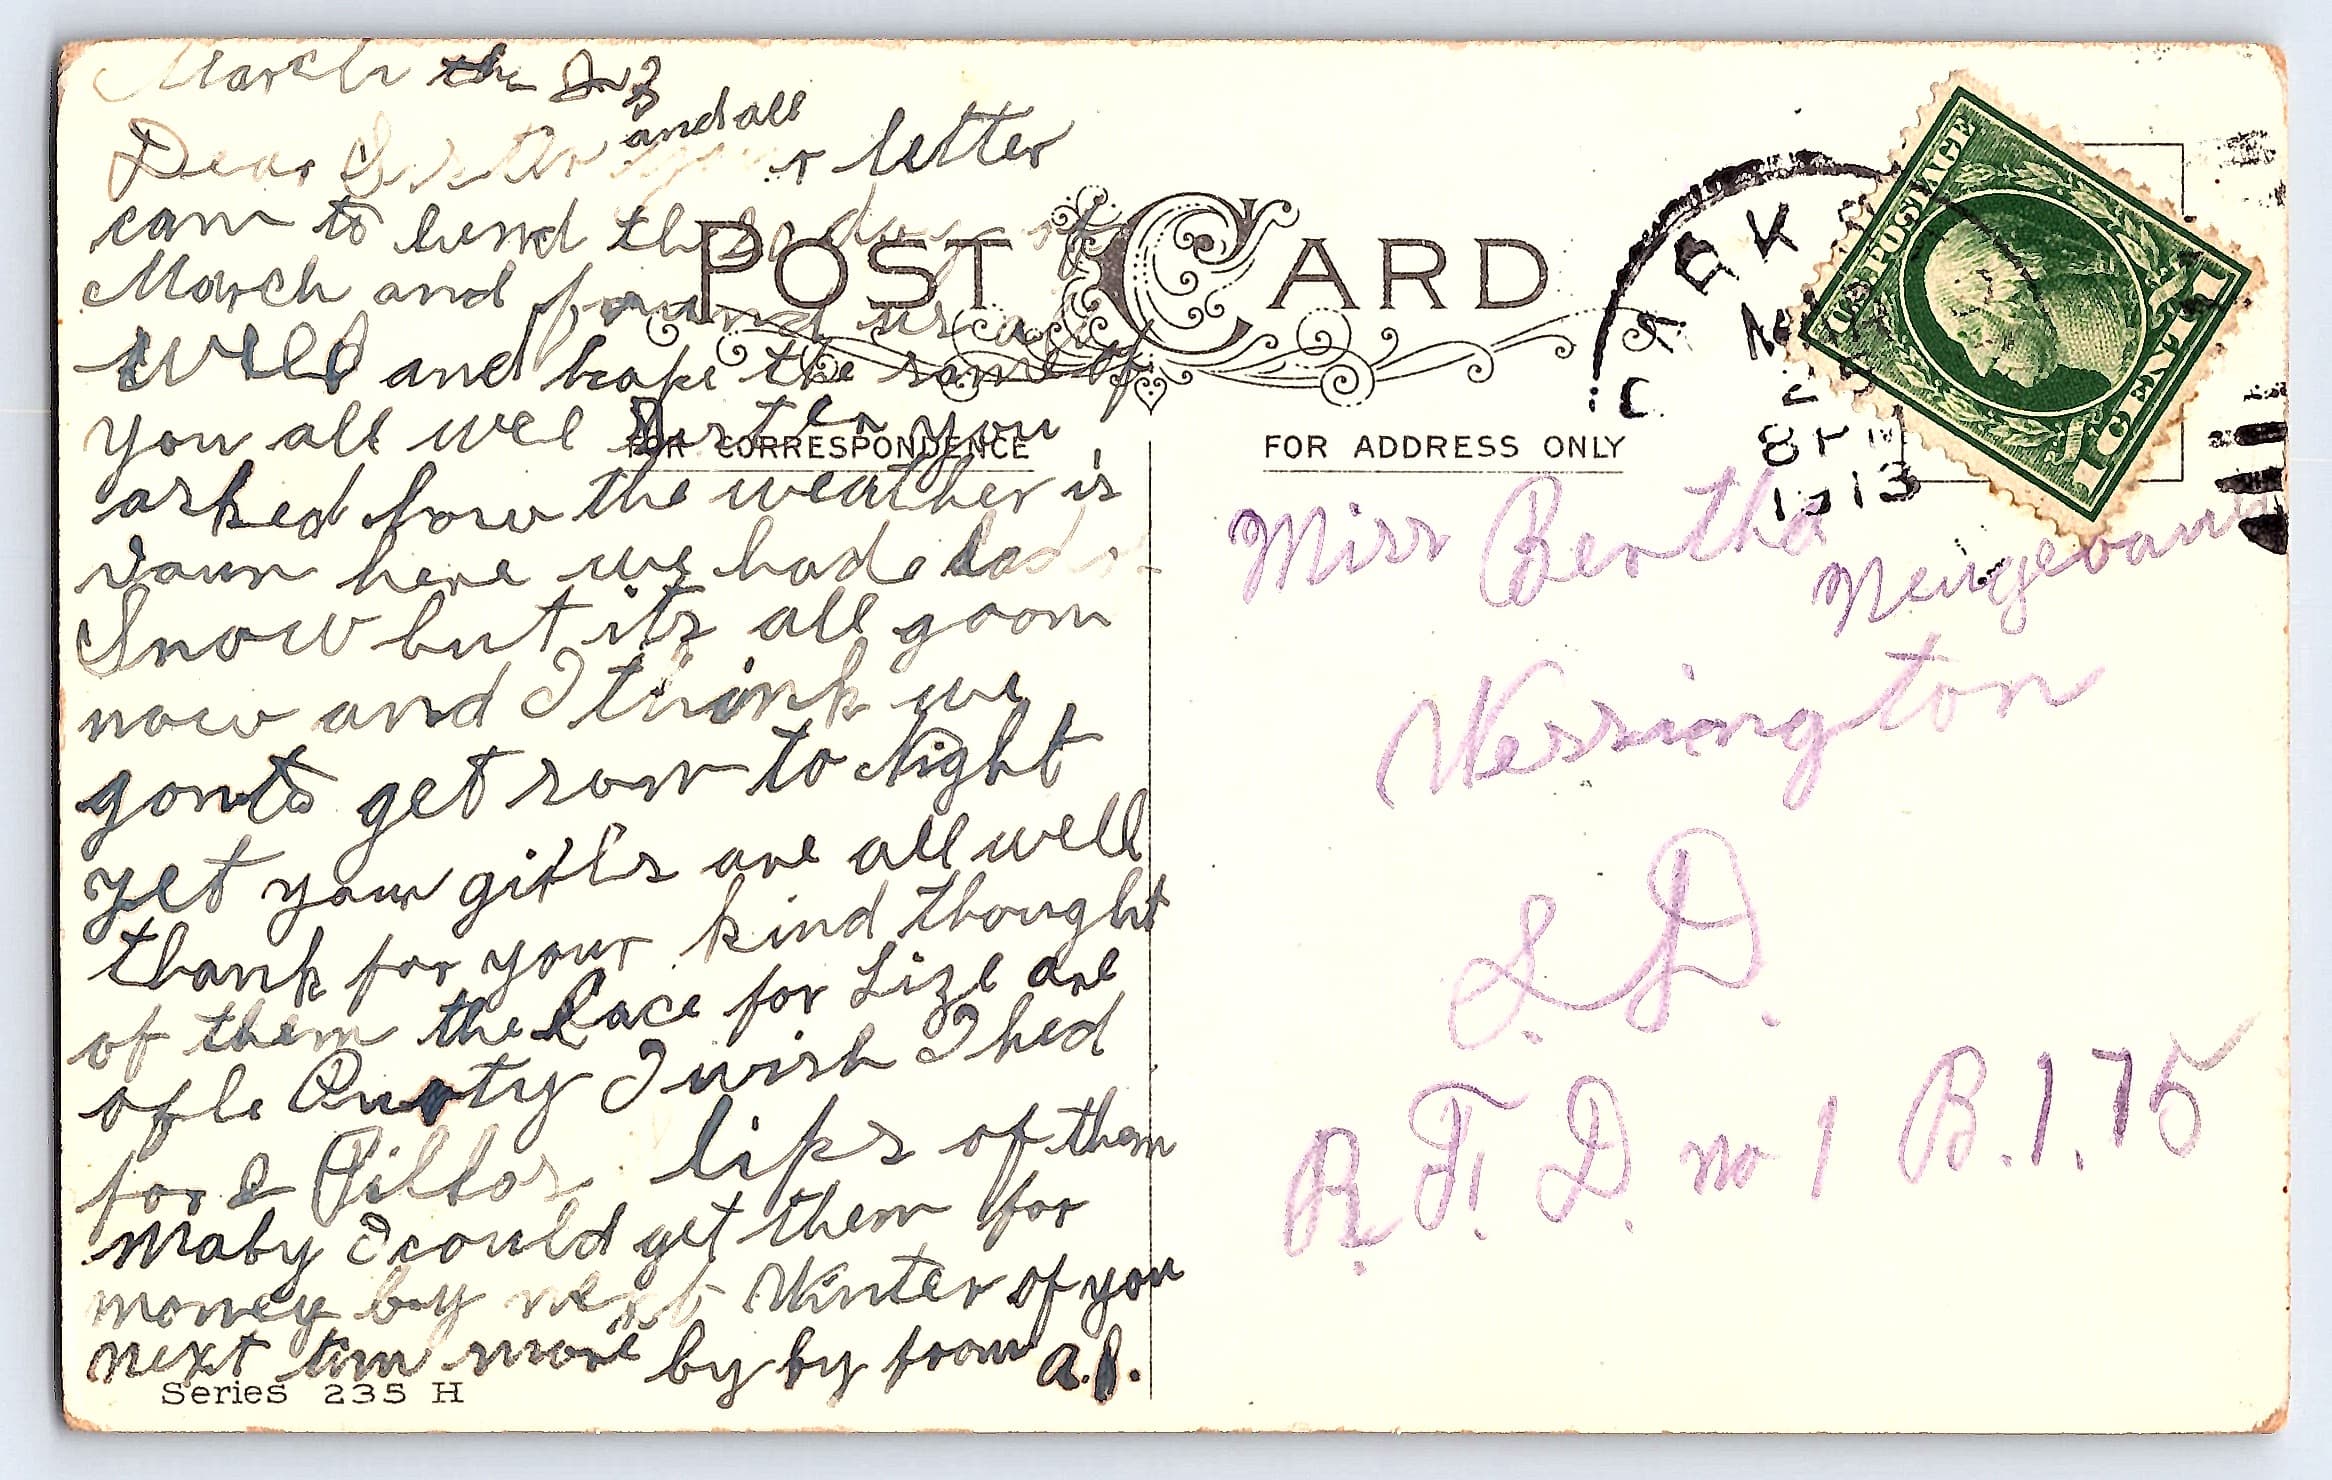 March the 23
Dear Sister and all your letter
cam to hend the day of
March and found us all
Well and hope the same of
you all wel Sister you
asked how the weather is
daun here we had
Snow but its all goom
now and I think we
gonto get som to Night
yet your gifts are all well
thank for your kind thought
of them the lace for Lize are
ofle Purty I wish I hed
for 2 Pillos lips of them
Maby I could get them for
money by next Winter of you
next tim more by by from A.P.
POST CARD
FOR CORRESPONDENCE
FOR ADDRESS ONLY
Series 235 H
U.S. POSTAGE
1 CENT 1
CLARK
8 PM
1913
Miss Bertha
Wessington
S. D.
R. F. D. no 1 B. 1.75